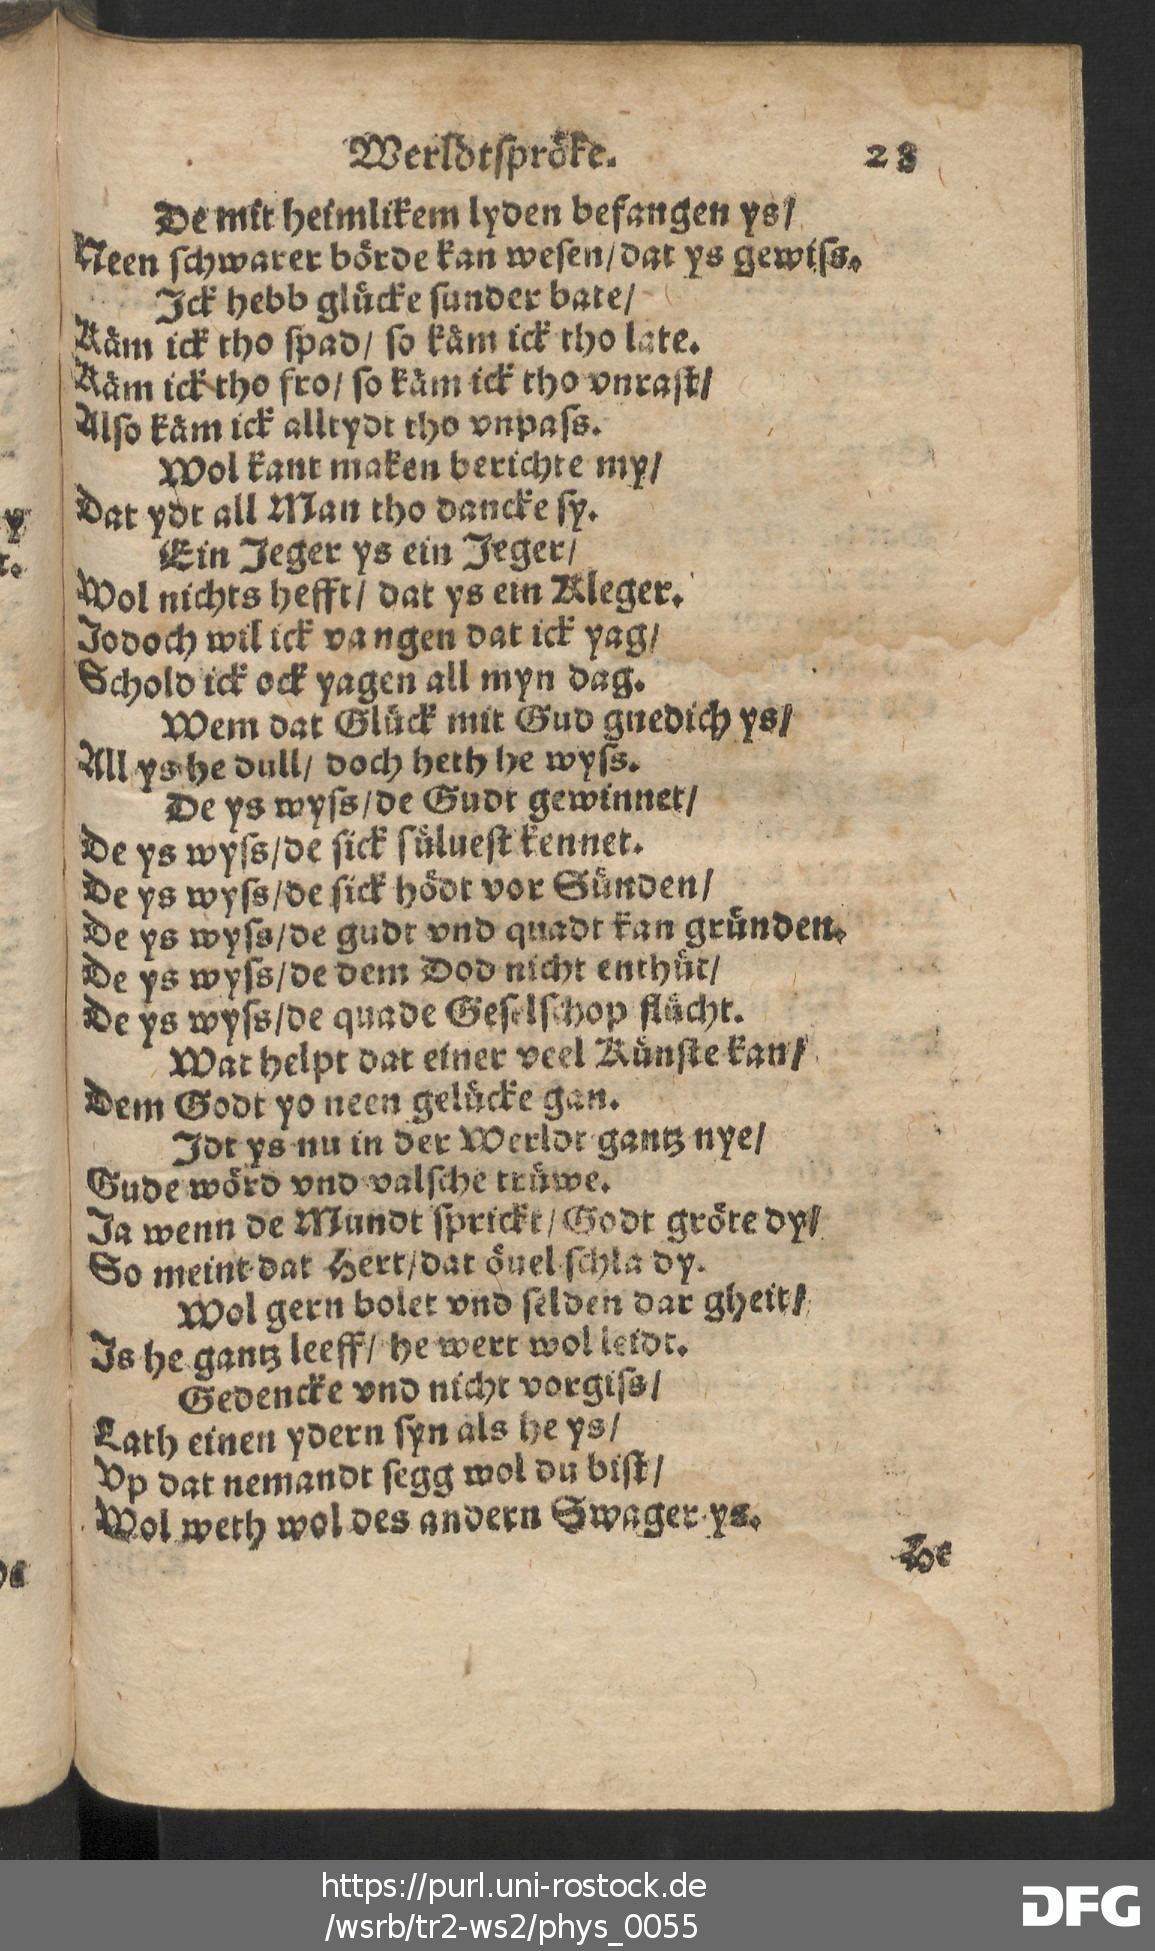 Werldtspröke. 28
De mit heimlikem lyden befangen ys/
Neen schwarer börde kan wesen/dat ys gewiss.
Ick hebb glücke sunder bate/
Käm ick tho spad/ so käm ick tho late.
Käm ick tho fro/ so käm ick tho vnrast/
Also käm ick alltydt tho vnpass.
Wol kant maken berichte my/
Dat ydt all Man tho dancke sy.
Ein Jeger ys ein Jeger/
Wol nichts hefft/ dat ys ein Kleger.
Jodoch wil ick vangen dat ick yag/
Schold ick ock yagen all myn dag.
Wem dat Glück mit Gud gnedich ys/
All ys he dull/ doch heth he wyss.
De ys wyss/de Gudt gewinnet/
De ys wyss/de sick süluest kennet.
De ys wyss/de sick hödt vor Sünden/
De ys wyss/de gudt vnd quadt kan gründen.
De ys wyss/de dem Dod nicht enthüt/
De ys wyss/de quade Geselschop flücht.
Wat helpt dat einer veel Künste kan/
Dem Godt yo neen gelücke gan.
Idt ys nu in der Werldt gantz nye/
Gude wörd vnd valsche trüwe.
Ja wenn de Mundt sprickt/Godt gröte dy/
So meint dat Hert/dat öuel schla dy.
Wol gern bolet vnd selden dar gheit/
Is he gantz leeff/ he wert wol leidt.
Gedencke vnd nicht vorgiss/
Lath einen ydern syn als he ys/
Vp dat nemandt segg wol du bist/
Wol weth wol des andern Swager ys.
He
https://purl.uni-rostock.de
/wsrb/tr2-ws2/phys_0055
DFG